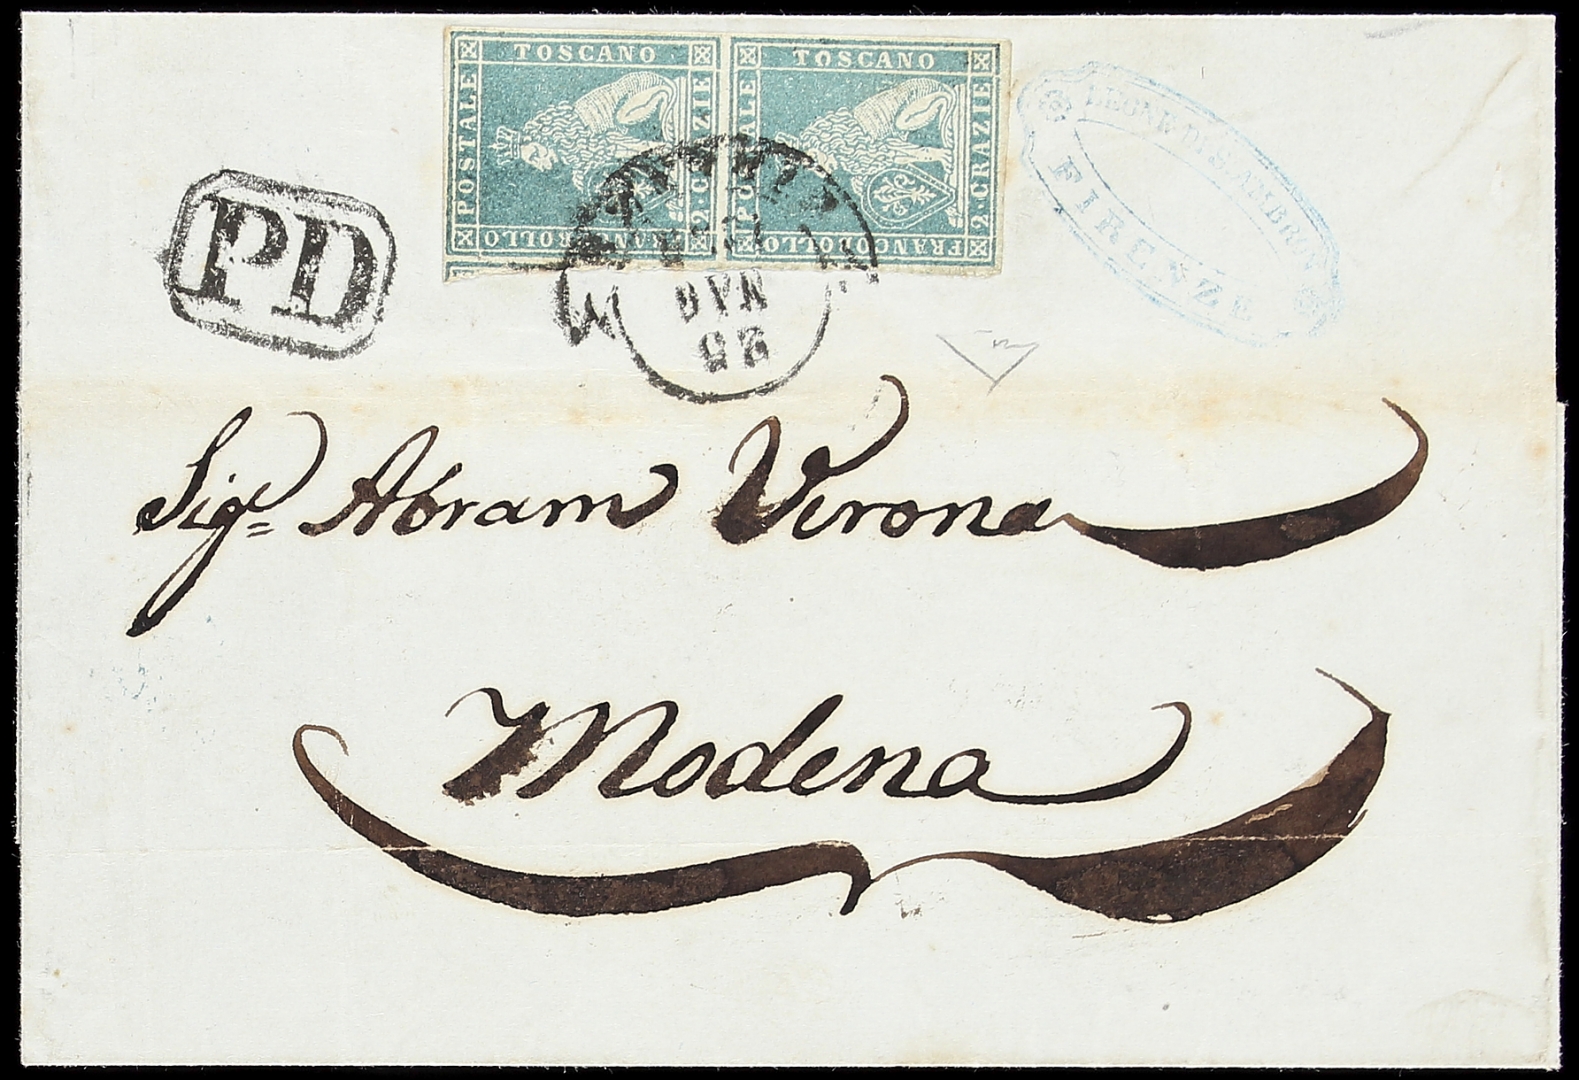 TOSCANO TOSCANO
POSTALE 2·CRAZIE POSTALE 2·CRAZIE
FRANCOBOLLO FRANCOBOLLO
LEONE DI S. AMBRON
FIRENZE
PD
25
MAG
Sigr= Abram Verona
Modena